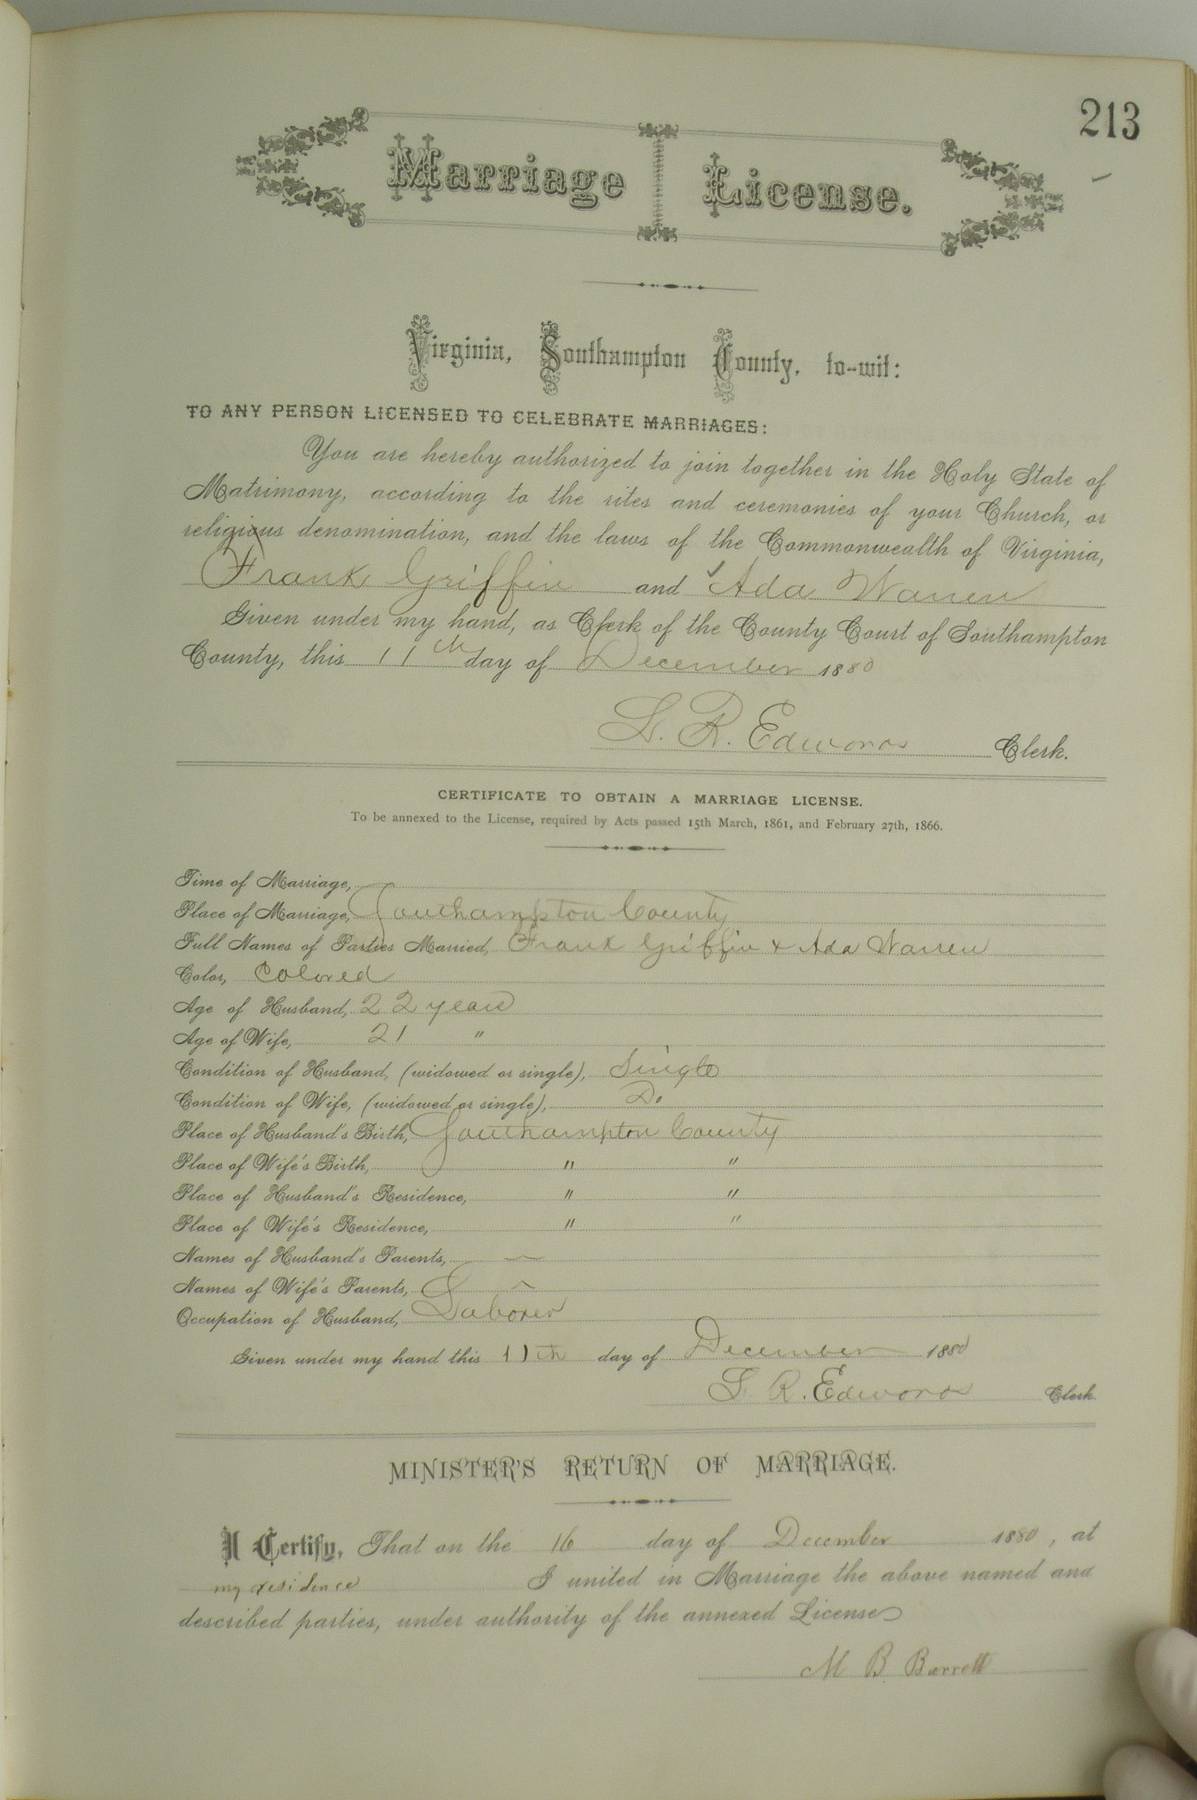 213
Marriage License.
Virginia, Southampton County, to-wit:
TO ANY PERSON LICENSED TO CELEBRATE MARRIAGES:
You are hereby authorized to join together in the Holy State of
Matrimony, according to the rites and ceremonies of your Church, or
religious denomination, and the laws of the Commonwealth of Virginia,
Frank Griffin and Ada Warren
Given under my hand, as Clerk of the County Court of Southampton
County, this 11th day of December 1880
L. R. Edwards Clerk.
CERTIFICATE TO OBTAIN A MARRIAGE LICENSE.
To be annexed to the License, required by Acts passed 15th March, 1861, and February 27th, 1866.
Time of Marriage,
Place of Marriage, Southampton County
Full Names of Parties Married, Frank Griffin & Ada Warren
Color, Colored
Age of Husband, 22 years
Age of Wife, 21 "
Condition of Husband, (widowed or single), Single
Condition of Wife, (widowed or single), Do
Place of Husband's Birth, Southampton County
Place of Wife's Birth, " "
Place of Husband's Residence, " "
Place of Wife's Residence, " "
Names of Husband's Parents, —
Names of Wife's Parents, —
Occupation of Husband, Laborer
Given under my hand this 11th day of December 1880
L. R. Edwards Clerk.
MINISTER'S RETURN OF MARRIAGE.
I Certify, That on the 16 day of December 1880, at
my residence I united in Marriage the above named and
described parties, under authority of the annexed License
M B Barrett